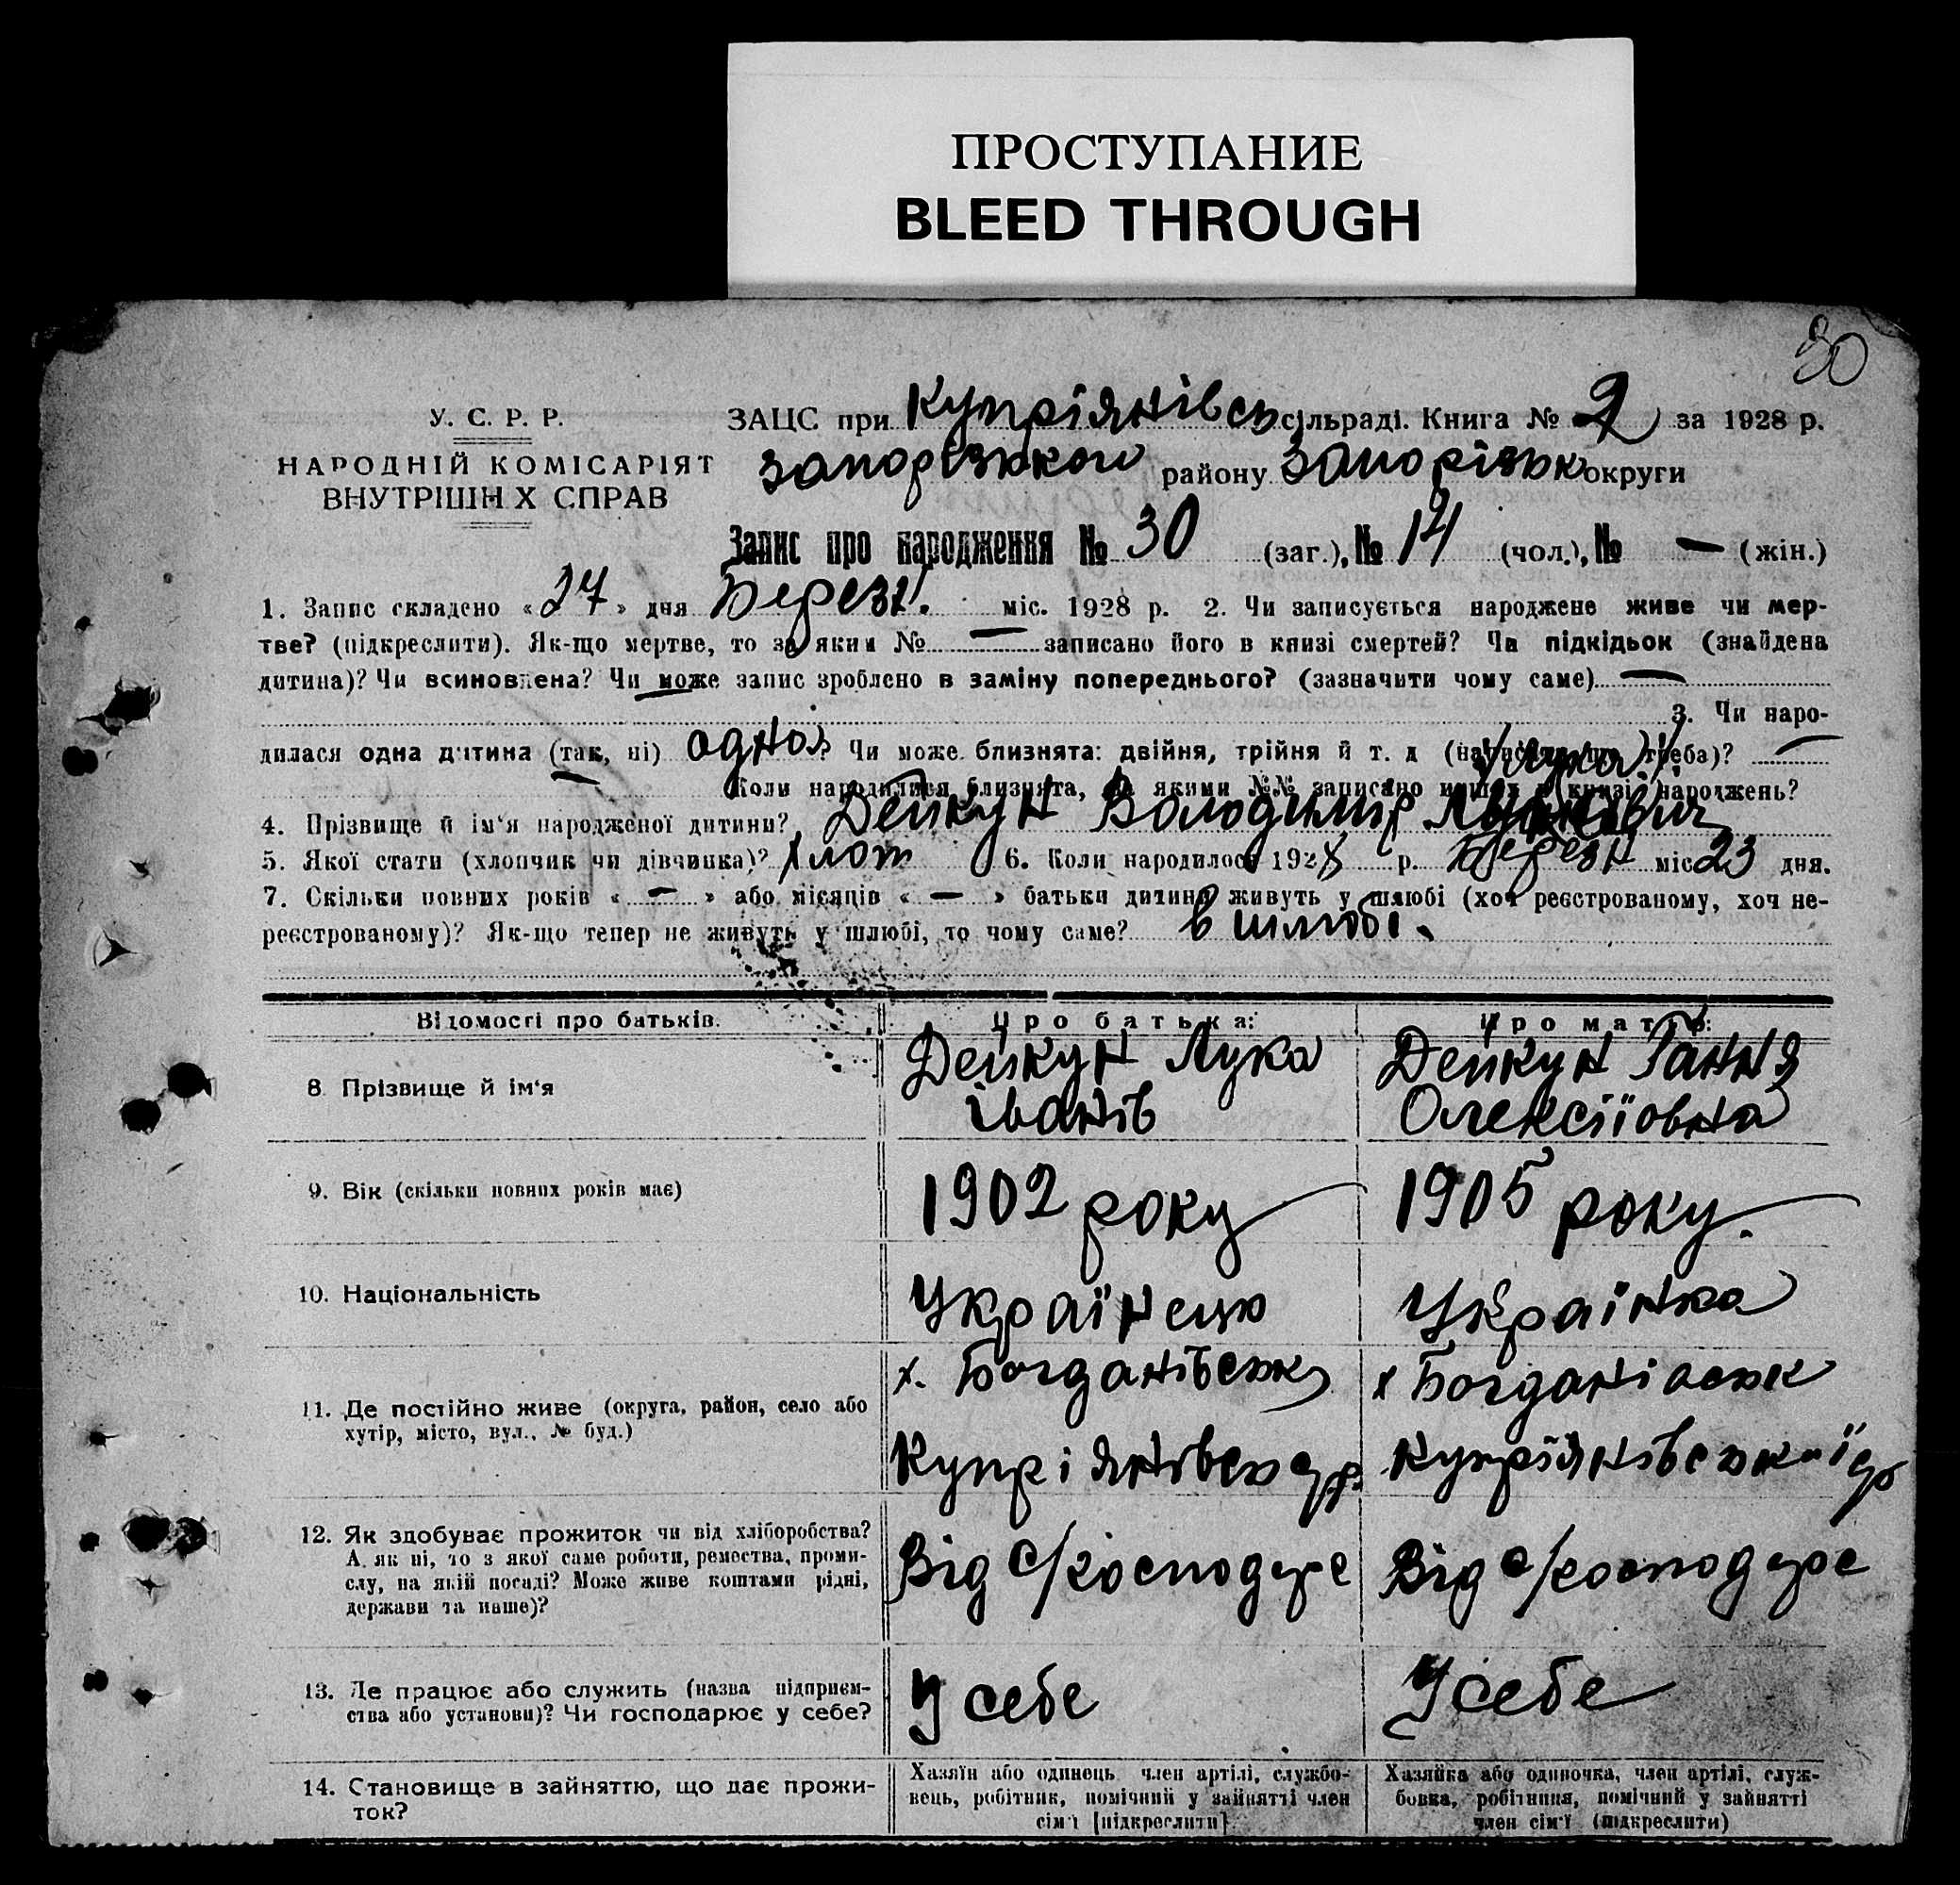 ПРОСТУПАНИЕ
BLEED THROUGH
30
У. С. Р. Р.
НАРОДНІЙ КОМІСАРІЯТ
ВНУТРІШН Х СПРАВ
ЗАЦС при Купріянівсь сільраді. Книга № 2 за 1928 р.
Запорізької району Запорізьк округи
Запис про народження № 30 (заг.), № 14 (чол.), № — (жін.)
1. Запис складено « 27 » дня Березн. міс. 1928 р. 2. Чи записується народжене живе чи мер-
тве? (підкреслити). Як-що мертве, то за яким № — записано його в книзі смертей? Чи підкідьок (знайдена
дитина)? Чи всиновлена? Чи може запис зроблено в заміну попереднього? (зазначити чому саме) —
3. Чи наро-
дилася одна дитина (так, ні) одна? Чи може близнята: двійня, трійня й т. д (написати що треба)? —
Коли народилися близнята, за якими №№ записано инших в книзі народжень?
4. Прізвище й ім'я народженої дитини? Дейкун Володимир
5. Якої стати (хлопчик чи дівчинка)? хлоп 6. Коли народилося 1928 р. Березн міс 23 дня.
7. Скільки повних років « — » або місяців « — » батьки дитини живуть у шлюбі (хоч реєстрованому, хоч не-
реєстрованому)? Як-що тепер не живуть у шлюбі, то чому саме? в шлюбі.
Відомості про батьків. Про батька: Про матір:
8. Прізвище й ім'я
Дейкун Лука
Іванів
Дейкун Гання
Олексіївна
9. Вік (скільки повних років має)
1902 року
1905 року.
10. Національність
Українець
Українка
11. Де постійно живе (округа, район, село або
хутір, місто, вул., № буд.)
х. Богданівськ
Купріянівсь
х Богданівськ
Купріянівської
12. Як здобуває прожиток чи від хліборобства?
А як ні, то з якої саме роботи, ремества, проми-
слу, на якій посаді? Може живе коштами рідні,
держави та инше)?
Від с/господарс
Від с/господарс
13. Де працює або служить (назва підприєм-
ства або установи)? Чи господарює у себе?
У себе
У себе
14. Становище в зайняттю, що дає прожи-
ток?
Хазяїн або одинець член артілі, службо-
вець, робітник, помічний у зайнятті член
сім'ї [підкреслити].
Хазяйка або одиночка, член артілі, служ-
бовка, робітниця, помічний у зайнятті
член сім'ї (підкреслити)